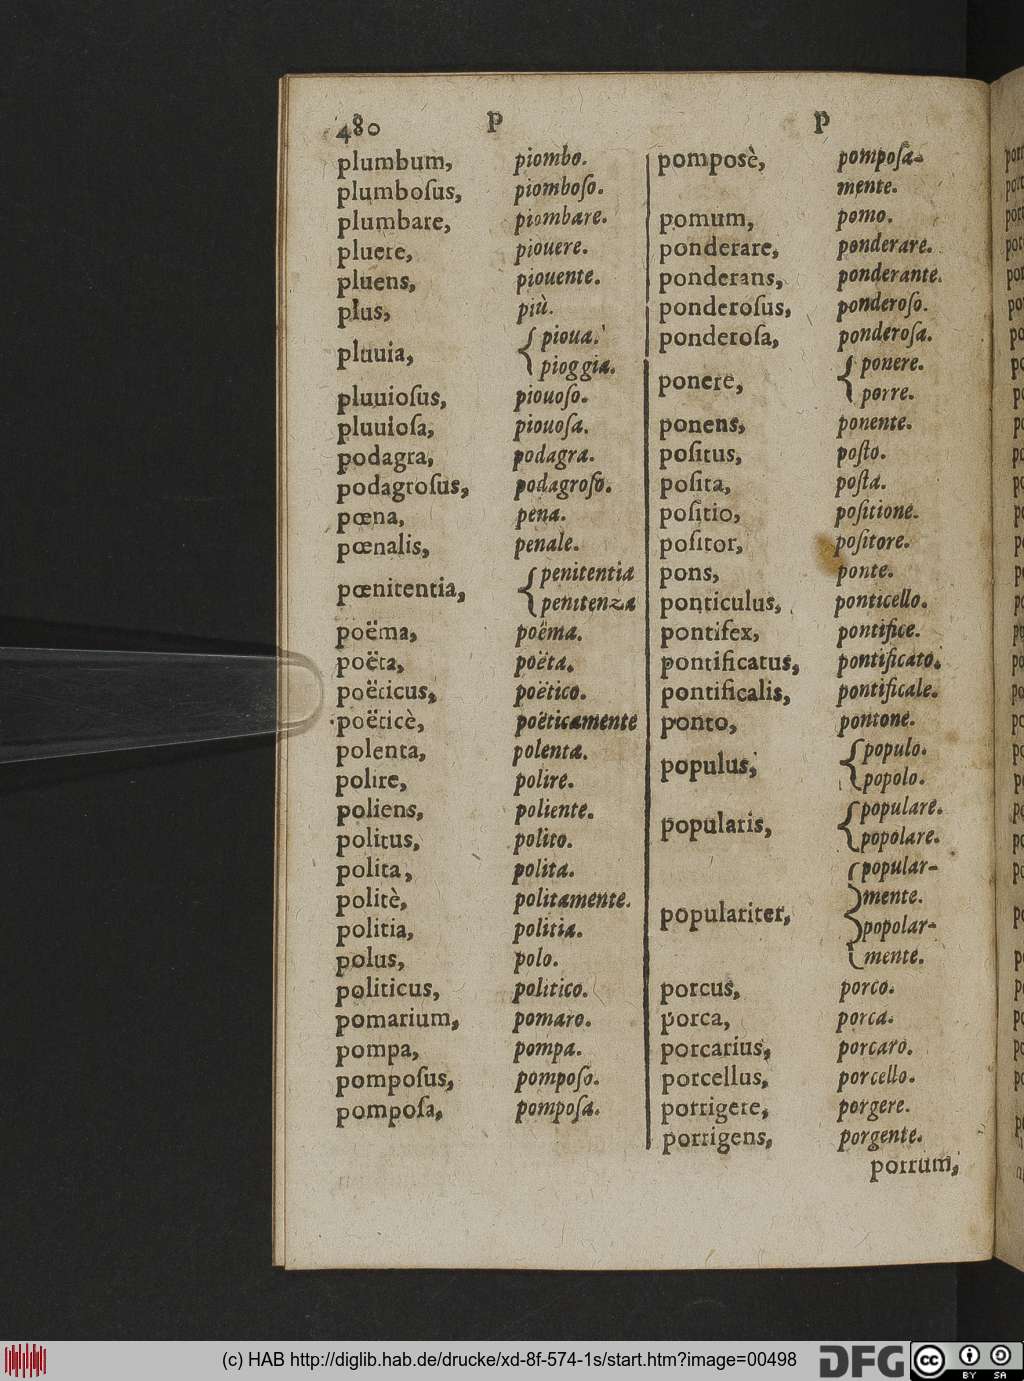 480 P P
plumbum, piombo.
plumboſus, piomboſo.
plumbare, piombare.
pluere, piouere.
pluens, piouente.
plus, più.
pluuia, { pioua.
pioggia.
pluuioſus, piouoſo.
pluuioſa, piouoſa.
podagra, podagra.
podagroſus, podagroſo.
pœna, pena.
pœnalis, penale.
pœnitentia, { penitentia
penitenza
poëma, poëma.
poëta, poëta.
poëticus, poëtico.
poëticè, poëticamente
polenta, polenta.
polire, polire.
poliens, poliente.
politus, polito.
polita, polita.
politè, politamente.
politia, politia.
polus, polo.
politicus, politico.
pomarium, pomaro.
pompa, pompa.
pompoſus, pompoſo.
pompoſa, pompoſa.
pomposè, pompoſa-
mente.
pomum, pomo.
ponderare, ponderare.
ponderans, ponderante.
ponderoſus, ponderoſo.
ponderoſa, ponderoſa.
ponere, { ponere.
porre.
ponens, ponente.
poſitus, poſto.
poſita, poſta.
poſitio, poſitione.
poſitor, poſitore.
pons, ponte.
ponticulus, ponticello.
pontifex, pontifice.
pontificatus, pontificato.
pontificalis, pontificale.
ponto, pontone.
populus, { populo.
popolo.
popularis, { populare.
popolare.
populariter, { popular-
mente.
popolar-
mente.
porcus, porco.
porca, porca.
porcarius, porcaro.
porcellus, porcello.
porrigere, porgere.
porrigens, porgente.
porrum,
(c) HAB http://diglib.hab.de/drucke/xd-8f-574-1s/start.htm?image=00498
DFG
cc
BY SA